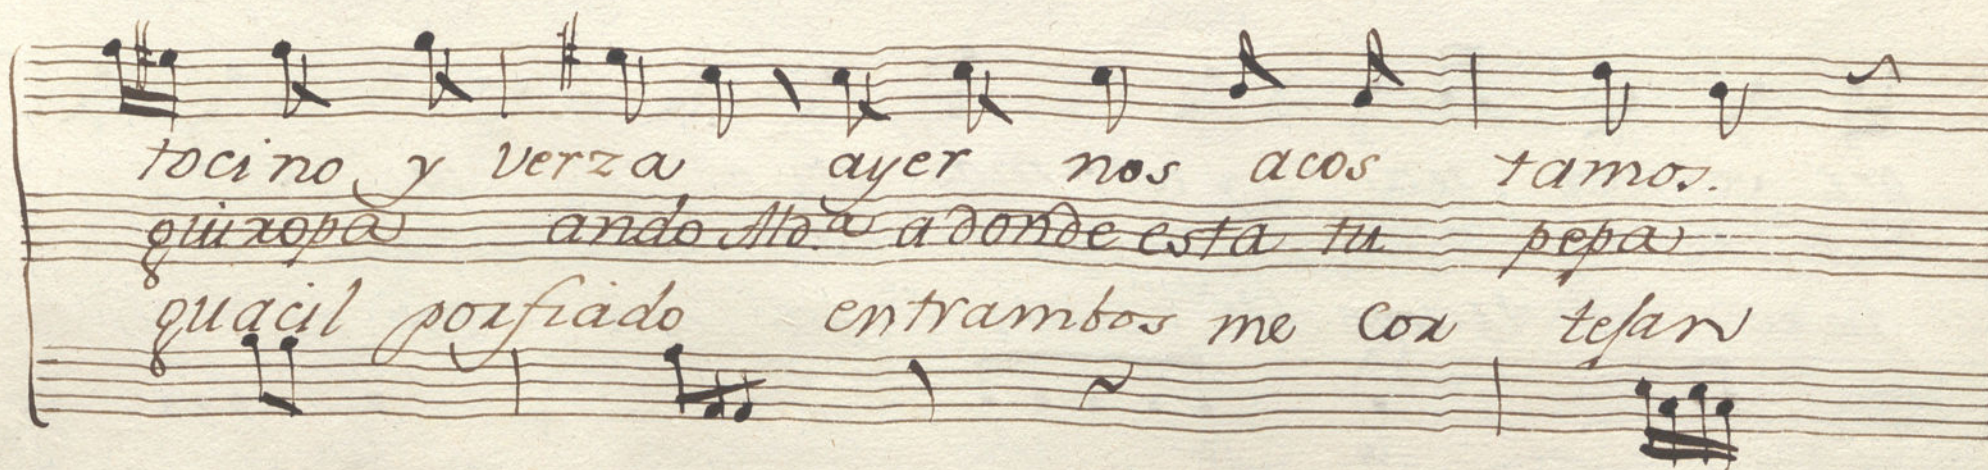 tocino y verza ayer nos acos tamos.
quixopa ando Ald.a adonde esta tu pepa
guacil porfiado entrambos me cor tesan